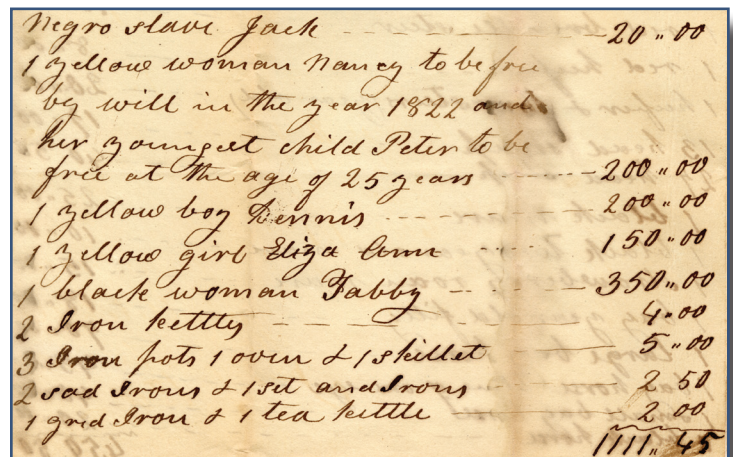 Negro slave Jack 20 " 00
1 yellow woman Nancy to be free
by will in the year 1822 and
her youngest child Peter to be
free at the age of 25 years 200 " 00
1 yellow boy Dennis 200 " 00
1 yellow girl Eliza Ann 150 " 00
1 black woman Tabby 350 " 00
2 Iron kettles 4 " 00
3 Iron pots 1 oven & 1 skillet 5 " 00
2 sad Irons & 1 set andIrons 2 50
1 gred Iron & 1 tea kettle 2 00
1111 " 45